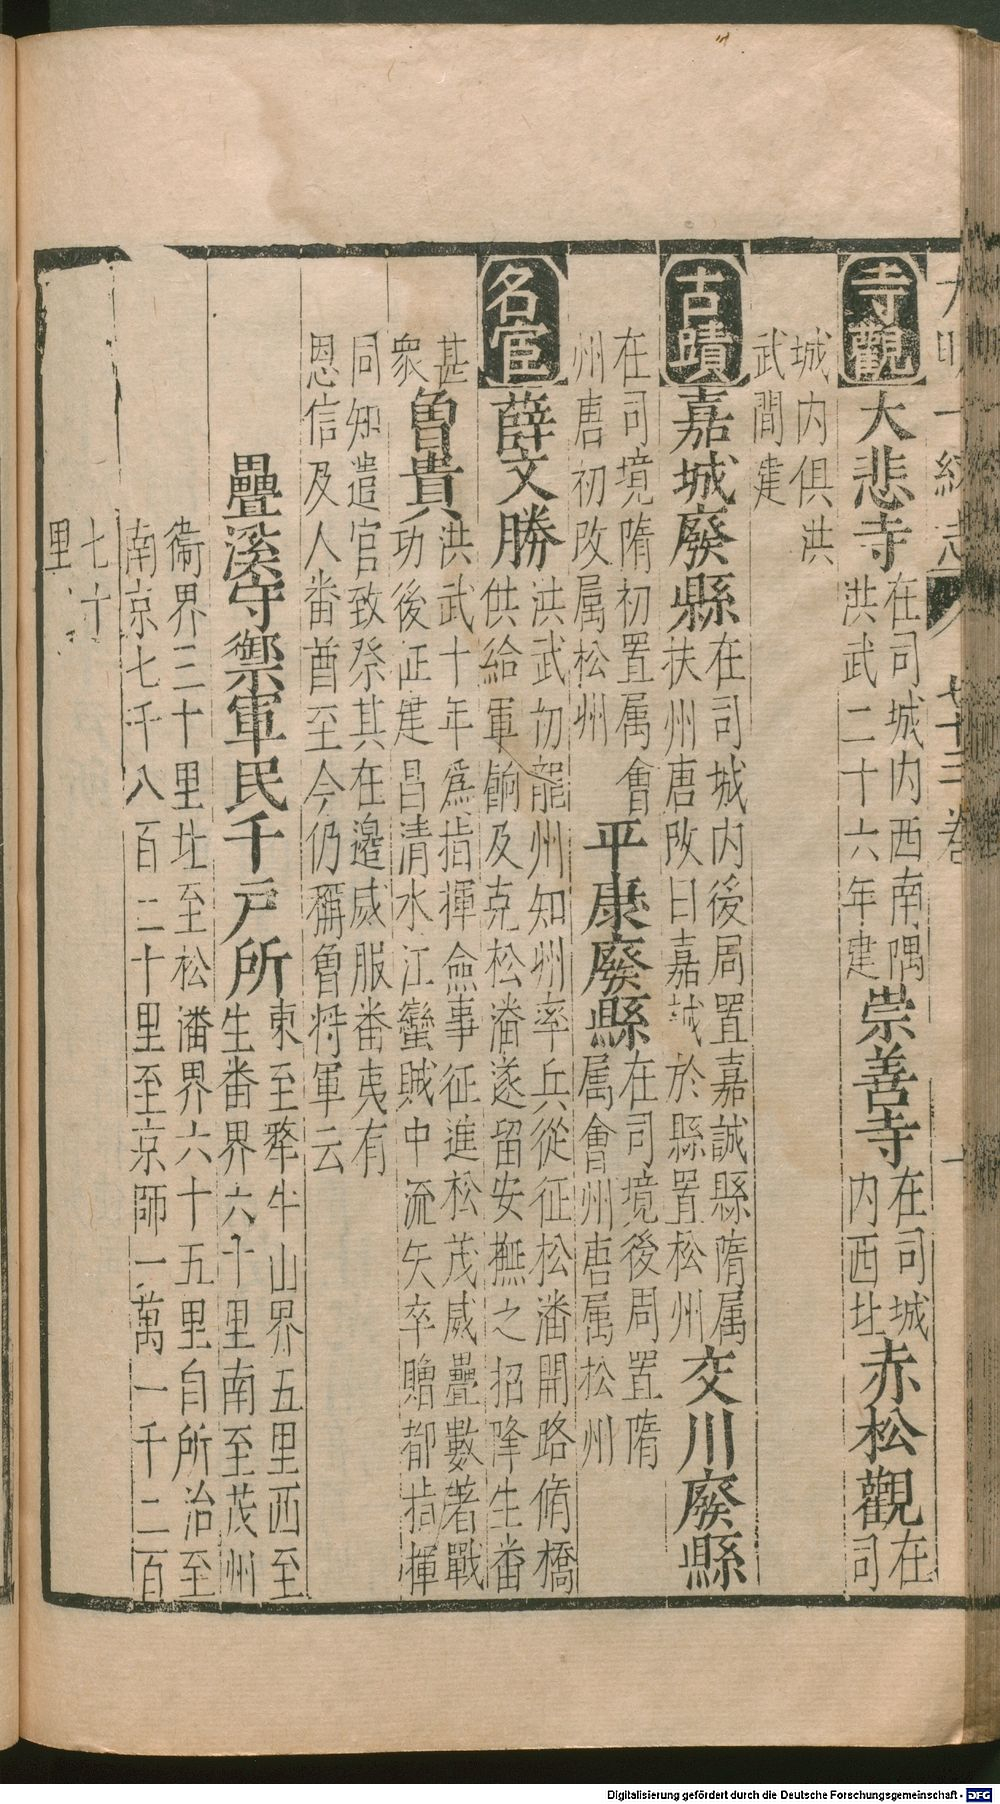 大明一統志 七十三卷
寺觀 大悲寺 在司城内西南隅洪武二十六年建 崇善寺 在司城内西北 赤松觀 在司
城内俱洪武間建
古蹟 嘉城廢縣 在司城内後周置嘉誠縣隋属扶州唐改曰嘉誠於縣置松州 交川廢縣
在司境隋初置属會州唐初改属松州 平康廢縣 在司境後周置隋属會州唐属松州
名宦 薛文勝 洪武初龍州知州率兵從征松潘開路脩橋供給軍餉及克松潘遂留安撫之招降生番
甚衆 魯貴 洪武十年為指揮僉事征進松茂威疊數著戰功後征建昌清水江蠻賊中流矢卒贈都指揮
同知遣官致祭其在邊威服番夷有恩信及人番酋至今仍稱魯将軍云
疊溪守禦軍民千户所 東至犛牛山界五里西至生番界六十里南至茂州
衞界三十里北至松潘界六十五里自所治至南京七千八百二十里至京師一萬一千二百
七十里
Digitalisierung gefördert durch die Deutsche Forschungsgemeinschaft - DFG